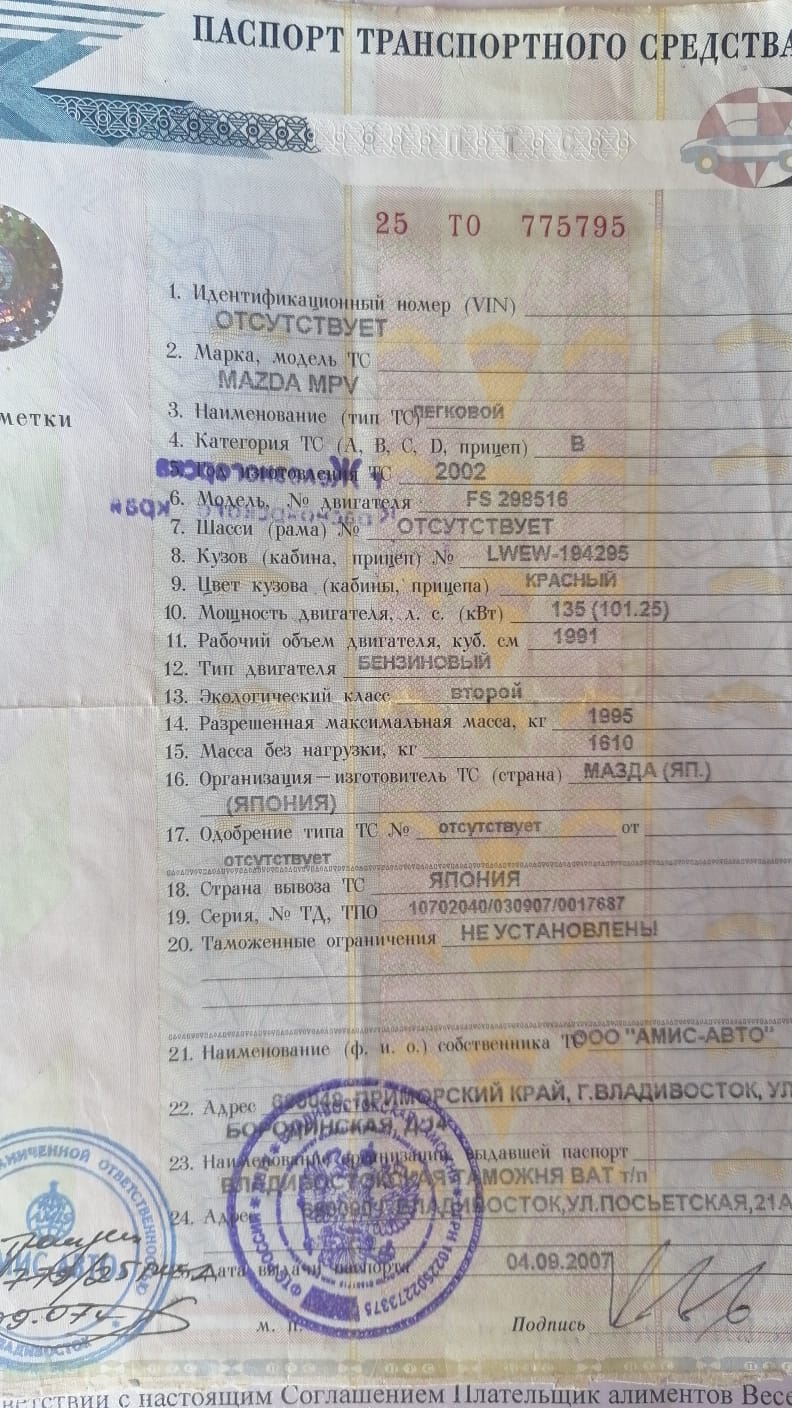 ПАСПОРТ ТРАНСПОРТНОГО СРЕДСТВА
25 ТО 775795
1. Идентификационный номер (VIN)
ОТСУТСТВУЕТ
2. Марка, модель ТС
MAZDA MPV
метки
3. Наименование (тип ТС) ЛЕГКОВОЙ
4. Категория ТС (A, B, C, D, прицеп) B
5. Год изготовления ТС 2002
6. Модель, № двигателя FS 298516
7. Шасси (рама) № ОТСУТСТВУЕТ
8. Кузов (кабина, прицеп) № LWEW-194295
9. Цвет кузова (кабины, прицепа) КРАСНЫЙ
10. Мощность двигателя, л. с. (кВт) 135 (101.25)
11. Рабочий объем двигателя, куб. см 1991
12. Тип двигателя БЕНЗИНОВЫЙ
13. Экологический класс второй
14. Разрешенная максимальная масса, кг 1995
15. Масса без нагрузки, кг 1610
16. Организация—изготовитель ТС (страна) МАЗДА (ЯП.)
(ЯПОНИЯ)
17. Одобрение типа ТС № отсутствует от
отсутствует
18. Страна вывоза ТС ЯПОНИЯ
19. Серия, № ТД, ТПО 10702040/030907/0017687
20. Таможенные ограничения НЕ УСТАНОВЛЕНЫ
21. Наименование (ф. и. о.) собственника ТС ООО "АМИС-АВТО"
22. Адрес ПРИМОРСКИЙ КРАЙ, Г.ВЛАДИВОСТОК, УЛ
БОРОДИНСКАЯ, Д.14
23. Наименование организации, выдавшей паспорт
ВЛАДИВОСТОКСКАЯ ТАМОЖНЯ ВАТ т/п
24. Адрес ВЛАДИВОСТОК,УЛ.ПОСЬЕТСКАЯ,21А
25. Дата выдачи паспорта 04.09.2007
м. п. Подпись
ветствии с настоящим Соглашением Плательщик алиментов Весе